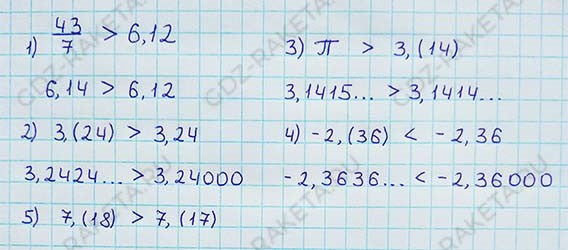 1) 43/7 > 6,12
6,14 > 6,12
2) 3,(24) > 3,24
3,2424... > 3,24000
5) 7,(18) > 7,(17)
3) π > 3,(14)
3,1415... > 3,1414...
4) -2,(36) < -2,36
-2,3636... < -2,36000
GDZ-RAKETA.RU